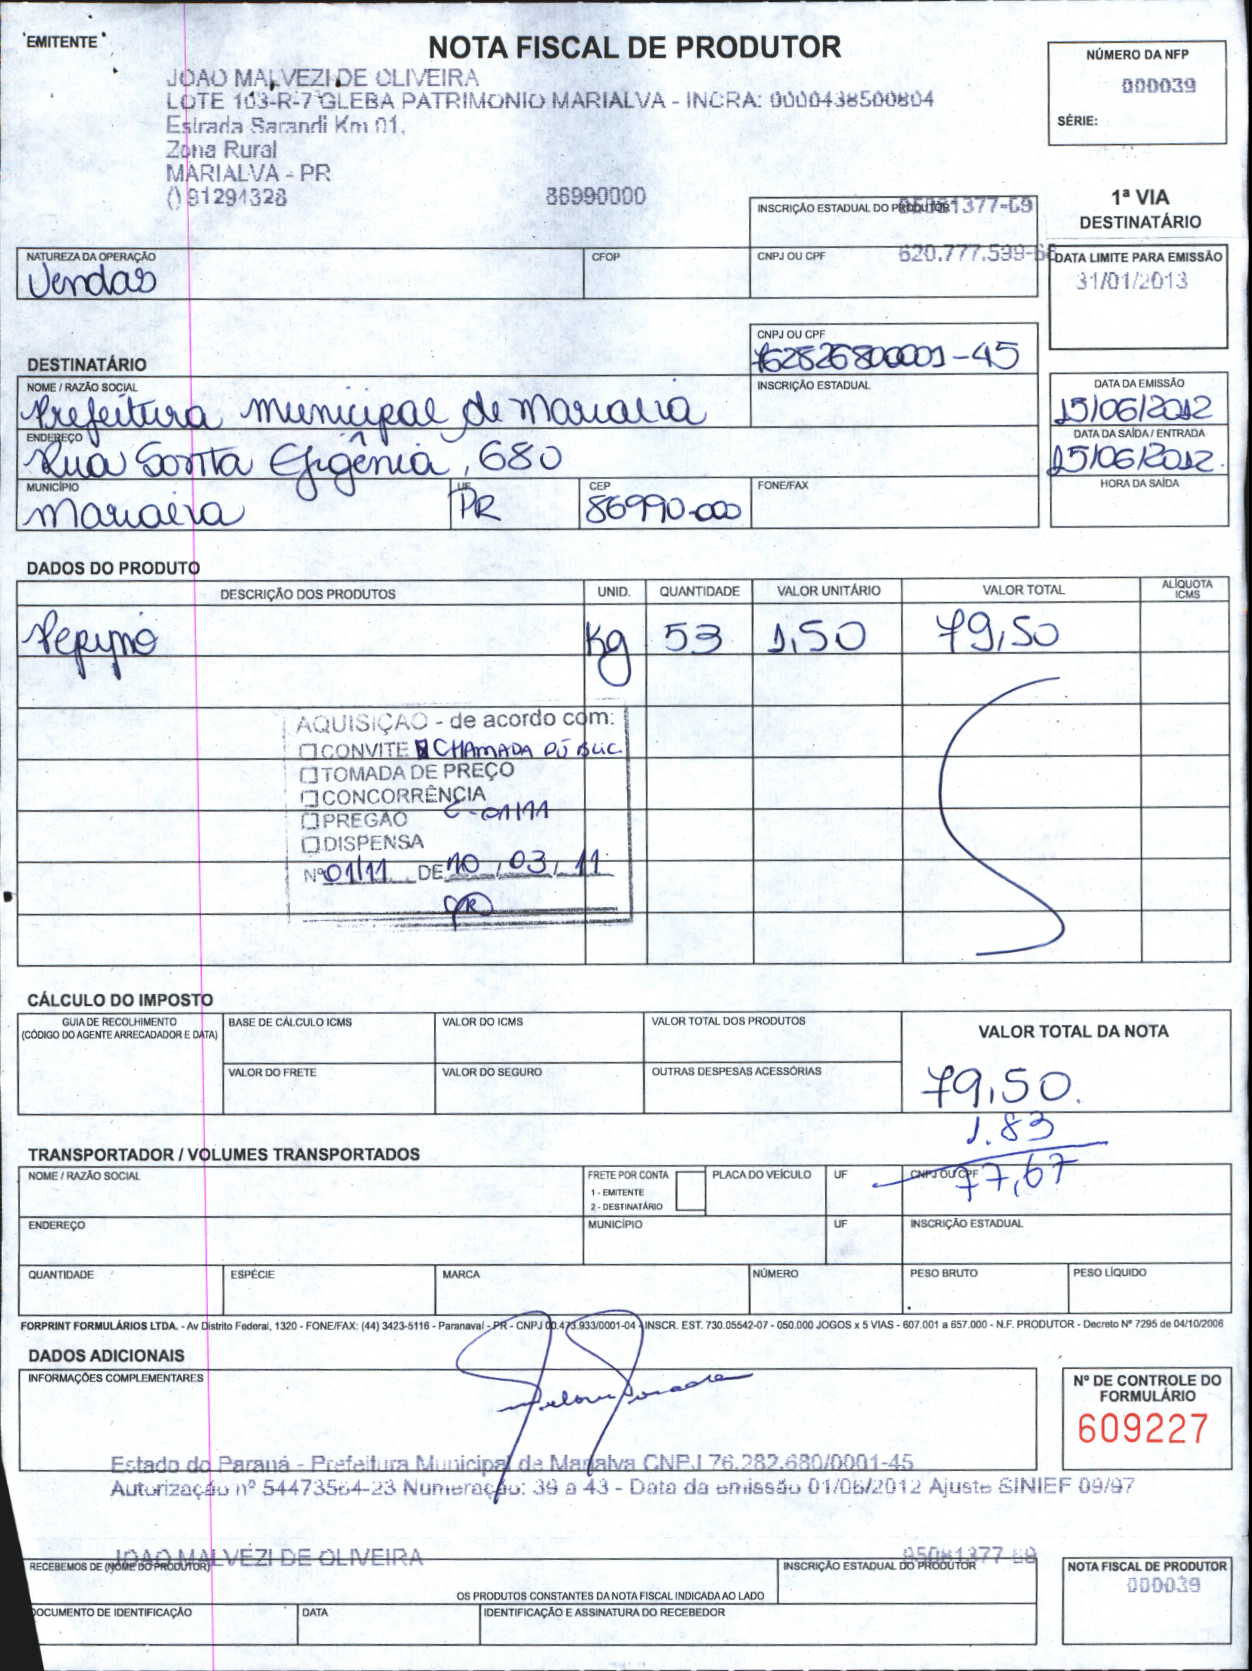 EMITENTE
NOTA FISCAL DE PRODUTOR
JOAO MALVEZI DE OLIVEIRA
LOTE 103-R-7 GLEBA PATRIMONIO MARIALVA - INCRA: 0000438500804
Estrada Sarandi Km 01,
Zona Rural
MARIALVA - PR
() 91294328 86990000
NÚMERO DA NFP
000039
SÉRIE:
1ª VIA
DESTINATÁRIO
INSCRIÇÃO ESTADUAL DO PRODUTOR 95081377-69
NATUREZA DA OPERAÇÃO
Vendas
CFOP
CNPJ OU CPF 620.777.599-68
DATA LIMITE PARA EMISSÃO
31/01/2013
DESTINATÁRIO
CNPJ OU CPF
762826800001-45
NOME / RAZÃO SOCIAL
Prefeitura Municipal de Marialva
INSCRIÇÃO ESTADUAL
DATA DA EMISSÃO
15/06/2012
ENDEREÇO
Rua Santa Efigênia, 680
DATA DA SAÍDA / ENTRADA
15/06/2012
MUNICÍPIO
Marialva
UF
PR
CEP
86990-000
FONE/FAX
HORA DA SAÍDA
DADOS DO PRODUTO
DESCRIÇÃO DOS PRODUTOS UNID. QUANTIDADE VALOR UNITÁRIO VALOR TOTAL ALÍQUOTA ICMS
Pepino Kg 53 1,50 79,50
AQUISIÇÃO - de acordo com:
CONVITE CHAMADA PÚBLIC
TOMADA DE PREÇO
CONCORRÊNCIA
PREGÃO C-01/11
DISPENSA
Nº 01/11 DE 10, 03, 11
CÁLCULO DO IMPOSTO
GUIA DE RECOLHIMENTO
(CÓDIGO DO AGENTE ARRECADADOR E DATA)
BASE DE CÁLCULO ICMS VALOR DO ICMS VALOR TOTAL DOS PRODUTOS
VALOR TOTAL DA NOTA
VALOR DO FRETE VALOR DO SEGURO OUTRAS DESPESAS ACESSÓRIAS
79,50.
1.83
77,67
TRANSPORTADOR / VOLUMES TRANSPORTADOS
NOME / RAZÃO SOCIAL
FRETE POR CONTA
1 - EMITENTE
2 - DESTINATÁRIO
PLACA DO VEÍCULO UF CNPJ OU CPF
ENDEREÇO MUNICÍPIO UF INSCRIÇÃO ESTADUAL
QUANTIDADE ESPÉCIE MARCA NÚMERO PESO BRUTO PESO LÍQUIDO
FORPRINT FORMULÁRIOS LTDA. - Av Distrito Federal, 1320 - FONE/FAX: (44) 3423-5116 - Paranavaí - PR - CNPJ 00.473.933/0001-04 - INSCR. EST. 730.05542-07 - 050.000 JOGOS x 5 VIAS - 607.001 a 657.000 - N.F. PRODUTOR - Decreto Nº 7295 de 04/10/2006
DADOS ADICIONAIS
INFORMAÇÕES COMPLEMENTARES
Nº DE CONTROLE DO
FORMULÁRIO
609227
Estado do Paraná - Prefeitura Municipal de Marialva CNPJ 76.282.680/0001-45
Autorização nº 54473564-23 Numeração: 39 a 43 - Data da emissão 01/06/2012 Ajuste SINIEF 09/97
RECEBEMOS DE (NOME DO PRODUTOR) JOAO MALVEZI DE OLIVEIRA
INSCRIÇÃO ESTADUAL DO PRODUTOR 95081377-69
OS PRODUTOS CONSTANTES DA NOTA FISCAL INDICADA AO LADO
NOTA FISCAL DE PRODUTOR
000039
DOCUMENTO DE IDENTIFICAÇÃO DATA IDENTIFICAÇÃO E ASSINATURA DO RECEBEDOR